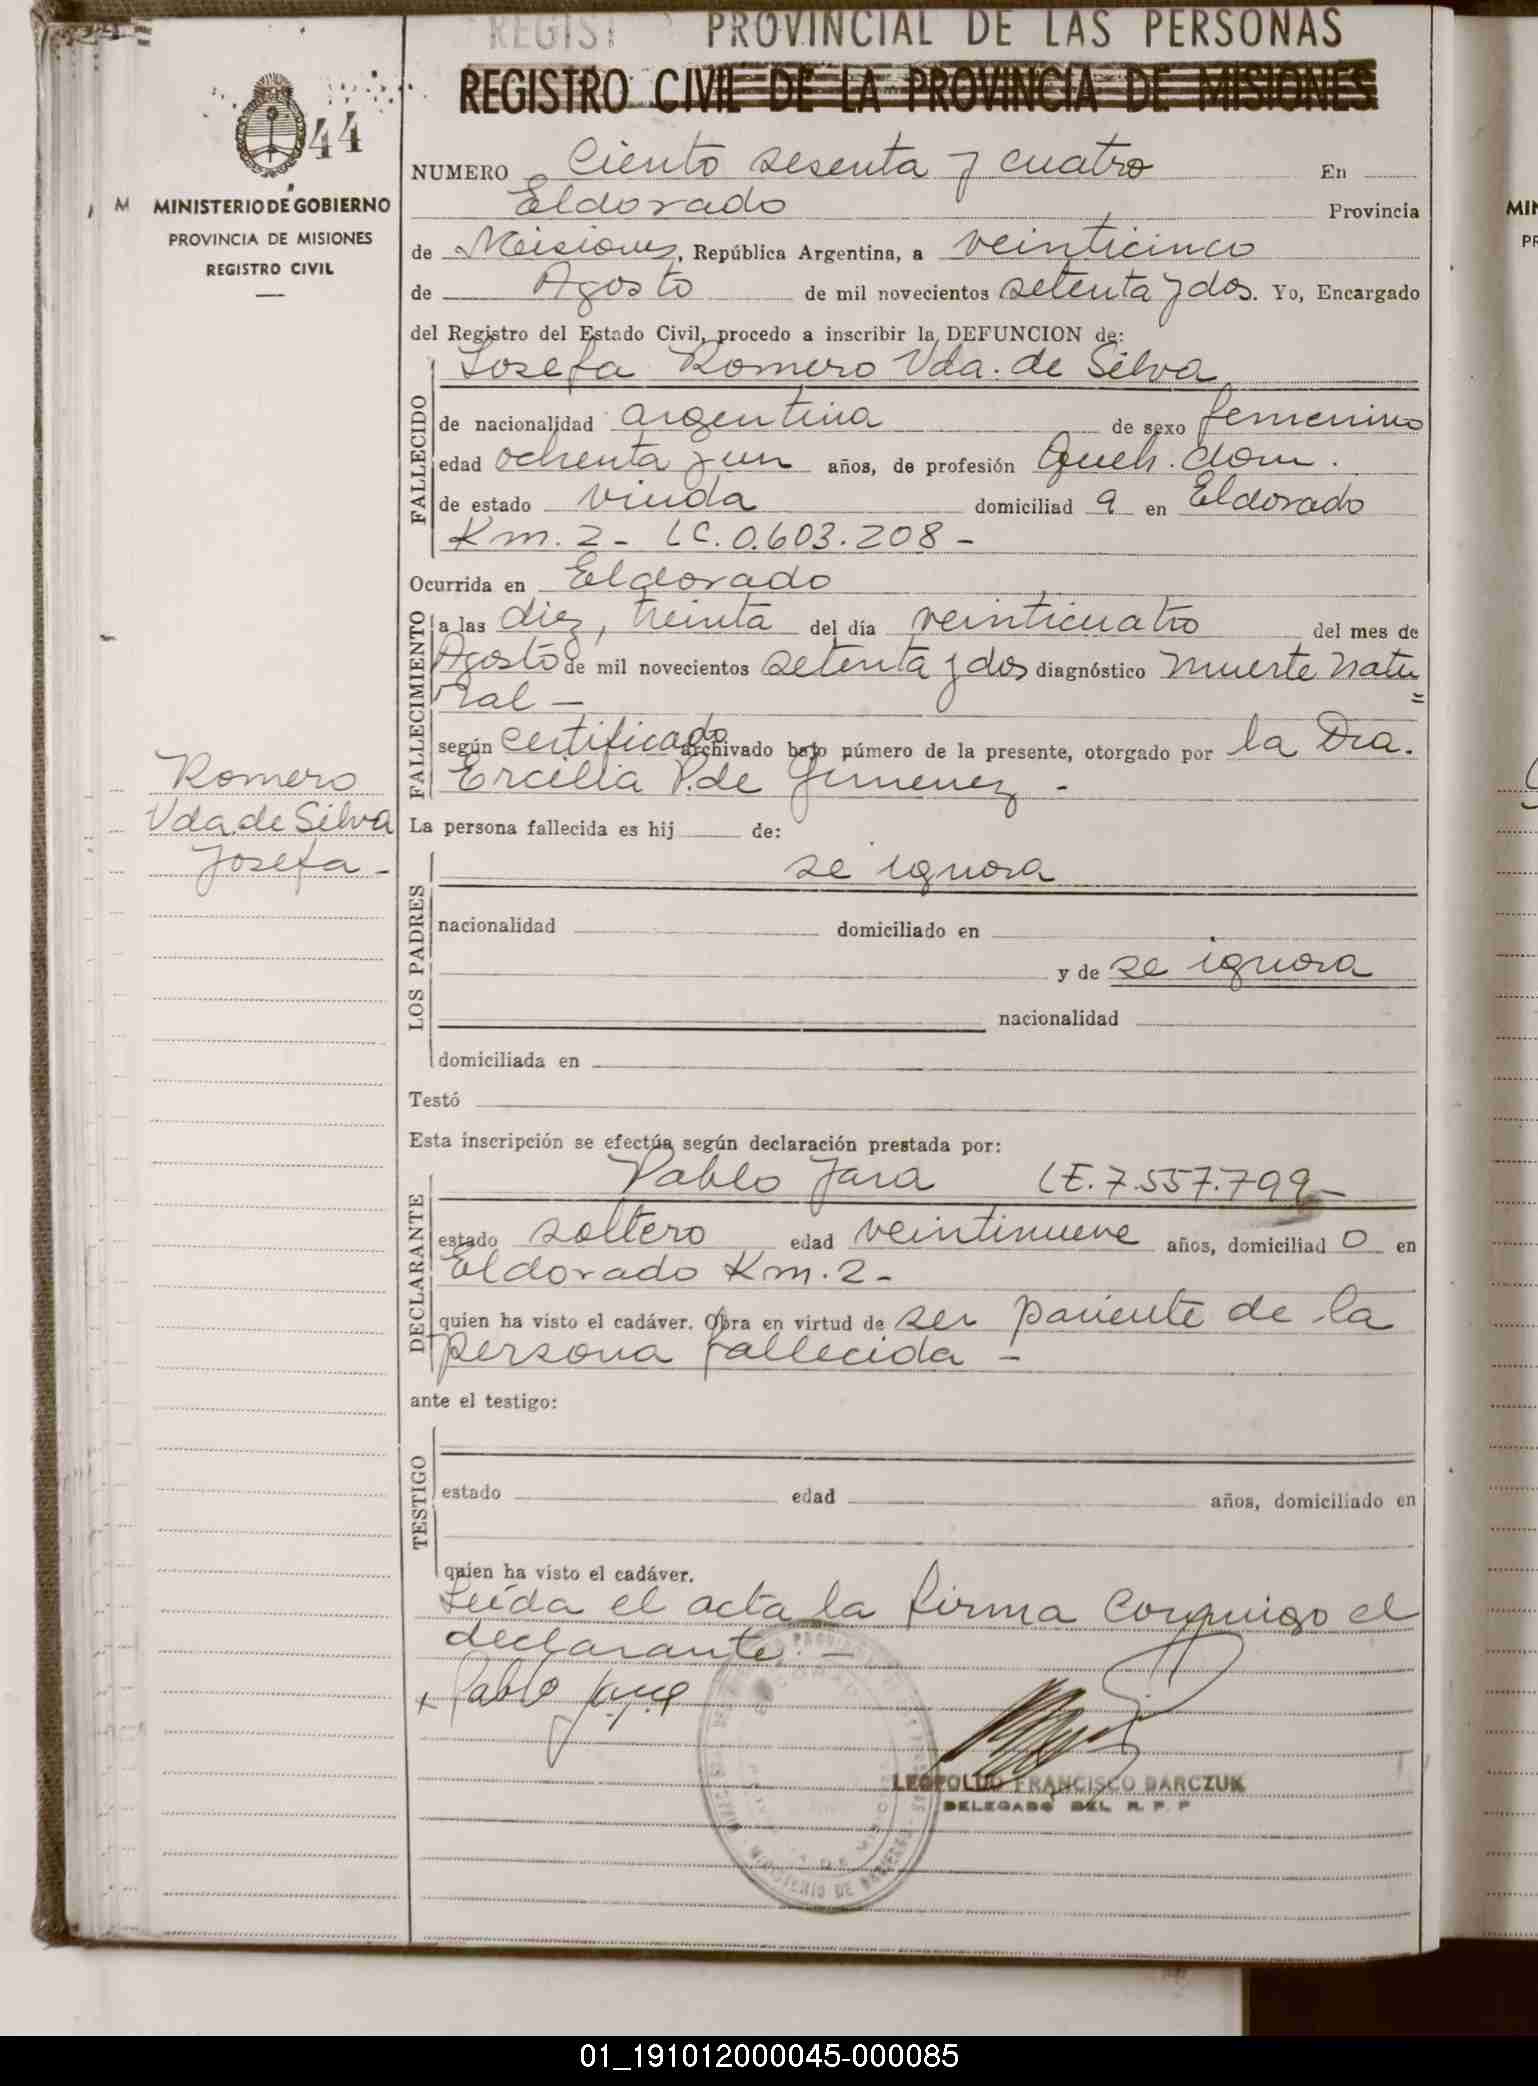 REGIST PROVINCIAL DE LAS PERSONAS
REGISTRO CIVIL DE LA PROVINCIA DE MISIONES
44
M MINISTERIO DE GOBIERNO
PROVINCIA DE MISIONES
REGISTRO CIVIL
NUMERO Ciento sesenta y cuatro En
Eldorado Provincia
de Misiones, República Argentina, a veinticinco
de Agosto de mil novecientos setenta y dos. Yo, Encargado
del Registro del Estado Civil, procedo a inscribir la DEFUNCION de:
Josefa Romero Vda. de Silva
FALLECIDO
de nacionalidad argentina de sexo femenino
edad ochenta y un años, de profesión Queh. dom.
de estado viuda domiciliad a en Eldorado
Km. 2 - LC. 0.603.208 -
Ocurrida en Eldorado
FALLECIMIENTO
a las diez, treinta del día veinticuatro del mes de
Agosto de mil novecientos setenta y dos diagnóstico muerte natu=
ral -
según certificado archivado bajo número de la presente, otorgado por la Dra.
Ercilia P. de Gimenez -
Romero
Vda. de Silva
Josefa -
La persona fallecida es hij de:
LOS PADRES
se ignora
nacionalidad domiciliado en
y de se ignora
nacionalidad
domiciliada en
Testó
Esta inscripción se efectúa según declaración prestada por:
DECLARANTE
Pablo Jara LE. 7.557.799 -
estado soltero edad veintinueve años, domiciliad o en
Eldorado Km. 2 -
quien ha visto el cadáver. Obra en virtud de ser pariente de la
persona fallecida -
ante el testigo:
TESTIGO
estado edad años, domiciliado en
quien ha visto el cadáver.
Leída el acta la firma conmigo el
declarante. -
x Pablo Jara
LEOPOLDO FRANCISCO BARCZUK
DELEGADO DEL R. P. P
MIN
PR
01_191012000045-000085